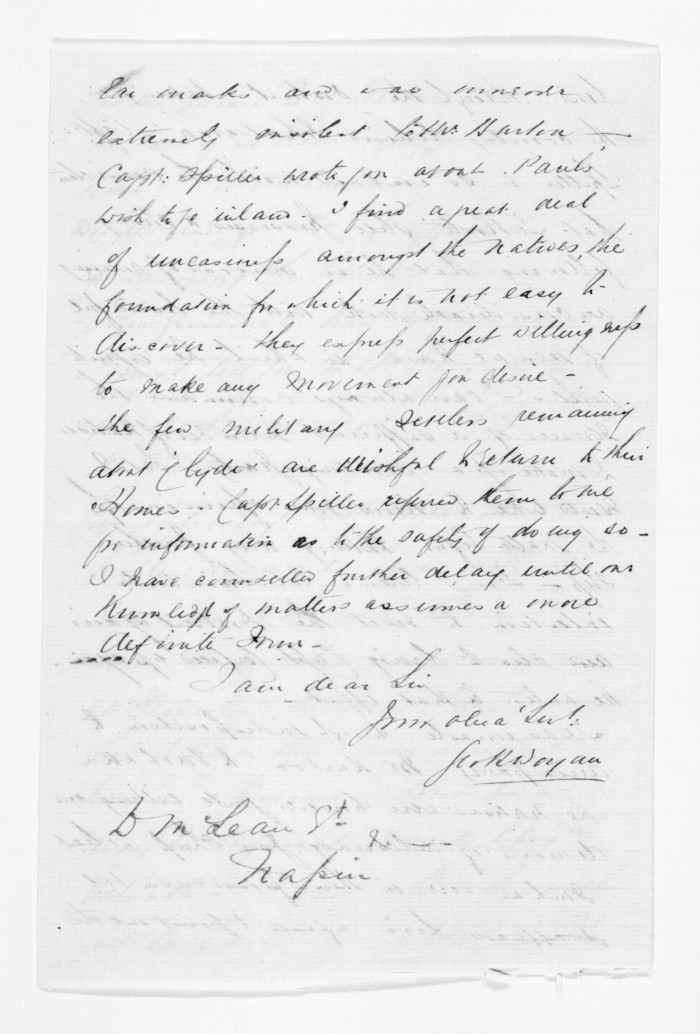 Ear marks and was moreover
extremely insolent to Mr. Harton —
Capt: Spiller wrote you about Paul's
wish to go inland - I find a great deal
of uneasiness amongst the Natives, the
foundation for which it is not easy to
discover - they express perfect willingness
to make any movement you desire -
The few military settlers remaining
about Clyde are wishful to return to their
Homes - Capt Spiller referred them to me
for information as to the safety of doing so -
I have counselled further delay until our
Knowledge of matters assumes a more
definite Form -
I am dear Sir
Your obed' Svt:
D McLean
Napier